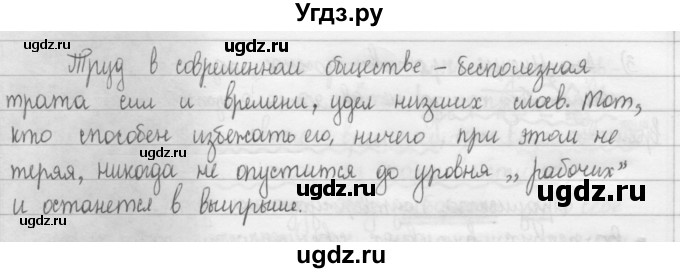 Угдз.ру
Труд в современном обществе – бесполезная
трата сил и времени, удел низших слоев. Тот,
кто способен избежать его, ничего при этом не
теряя, никогда не опустится до уровня „ рабочих"
и останется в выигрыше.
ugdz.ru
ugdz.ru
ugdz.ru
ugdz.ru
ugdz.ru
ugdz.ru
ugdz.ru
ugdz.ru
ugdz.ru
ugdz.ru